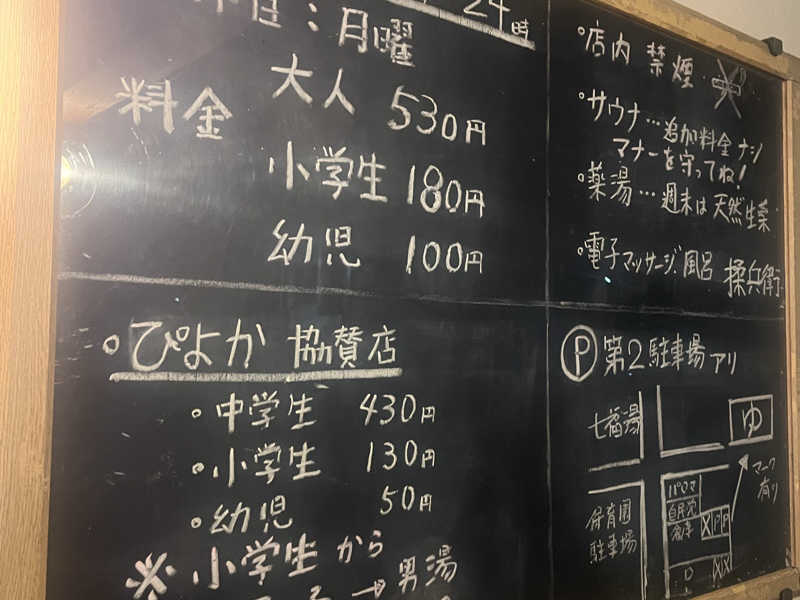 24時
月曜
料金
大人 530円
小学生 180円
幼児 100円
・店内 禁煙
・サウナ…追加料金ナシ
マナーを守ってね!
・薬湯…週末は天然生薬
・電子マッサージ風呂 揉兵衛
・ぴよか 協賛店
・中学生 430円
・小学生 130円
・幼児 50円
※小学生から
→男湯
Ⓟ 第2駐車場アリ
七福湯
ゆ
マーク
有り
パロマ
保育園
駐車場
倉庫